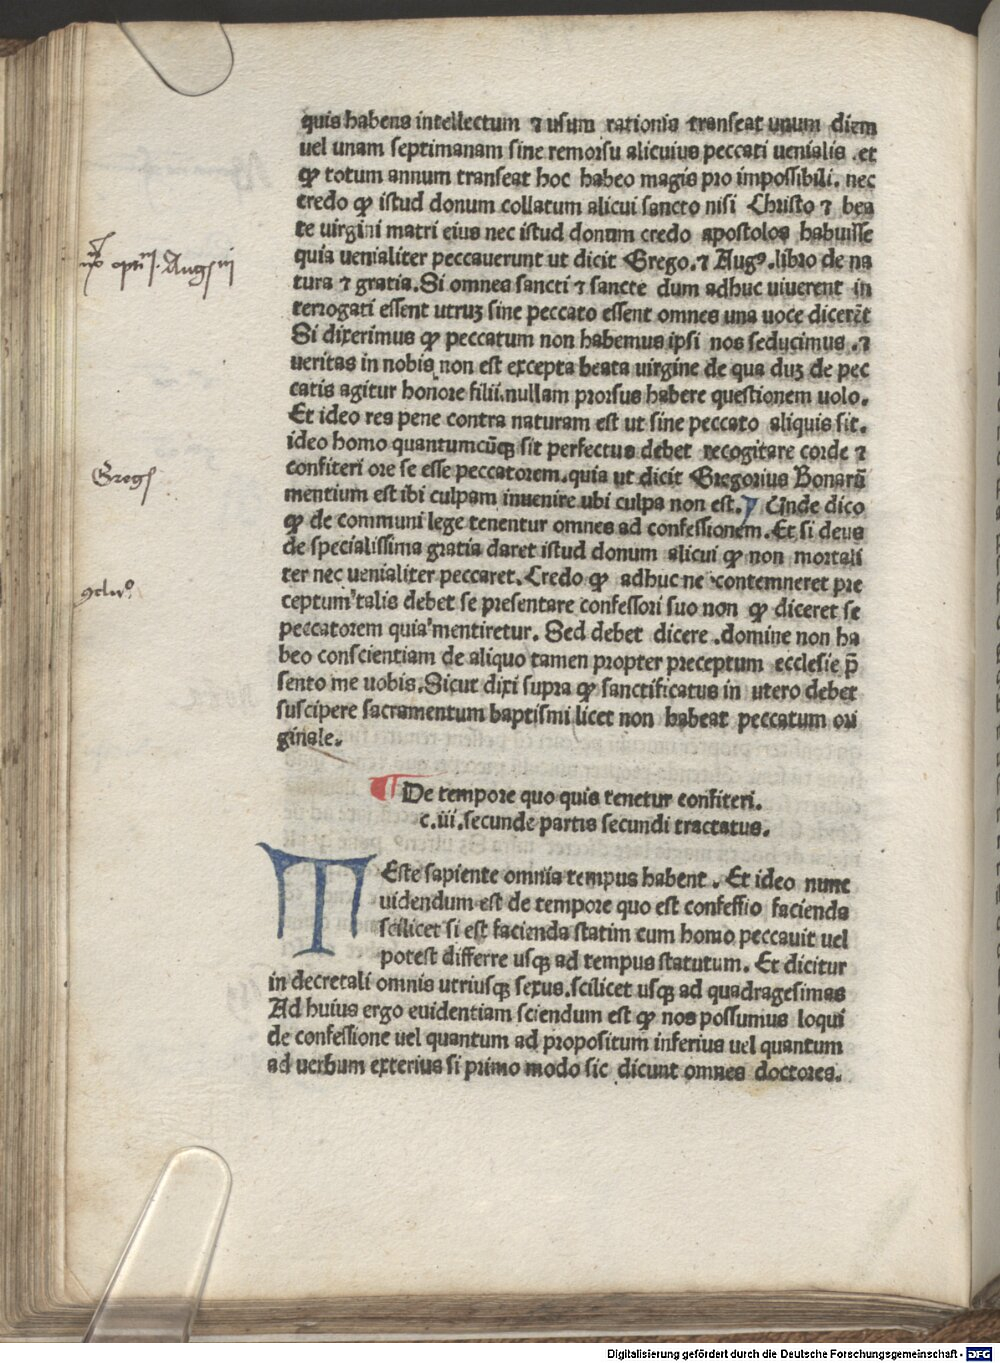 quis habens intellectum ⁊ usum rationis transeat unum diem
uel unam septimanam sine remorsu alicuius peccati uenialis .et
ꝙ totum annum transeat hoc habeo magis pro impossibili. nec
credo ꝙ istud donum collatum alicui sancto nisi Christo ⁊ bea
te uirgini matri eius nec istud donum credo apostolos habuisse
quia uenialiter peccauerunt ut dicit Grego.⁊ Augꝰ.libro de na
tura ⁊ gratia.Si omnes sancti ⁊ sancte dum adhuc uiuerent in
terrogati essent utruꝫ sine peccato essent omnes una uoce dicerēt
Si dixerimus ꝙ peccatum non habemus ipsi nos seducimus .⁊
ueritas in nobis non est excepta beata uirgine de qua duꝫ de pec
catis agitur honore filii.nullam prorsus habere questionem uolo.
Et ideo res pene contra naturam est ut sine peccato aliquis sit.
ideo homo quantumcūqꝫ sit perfectus debet recogitare corde ⁊
confiteri ore se esse peccatorem.quia ut dicit Gregorius Bonarū
mentium est ibi culpam inuenire ubi culpa non est. Unde dico
ꝙ de communi lege tenentur omnes ad confessionem.Et si deus
de specialissima gratia daret istud donum alicui ꝙ non mortali
ter nec uenialiter peccaret.Credo ꝙ adhuc ne contemneret pre
ceptum talis debet se presentare confessori suo non ꝙ diceret se
peccatorem quia mentiretur. Sed debet dicere .domine non ha
beo conscientiam de aliquo tamen propter preceptum ecclesie p̄
sento me uobis.Sicut dixi supra ꝙ sanctificatus in utero debet
suscipere sacramentum baptismi licet non habeat peccatum ori
ginale.
Augꝰ
Gregꝰ
¶ De tempore quo quis tenetur confiteri.
c.iii.secunde partis secundi tractatus.
TEste sapiente omnia tempus habent . Et ideo nunc
uidendum est de tempore quo est confessio facienda
scilicet si est facienda statim cum homo peccauit uel
potest differre usqꝫ ad tempus statutum. Et dicitur
in decretali omnis utriusqꝫ sexus.scilicet usqꝫ ad quadragesimas
Ad huius ergo euidentiam sciendum est ꝙ nos possumus loqui
de confessione uel quantum ad propositum inferius uel quantum
ad uerbum exterius si primo modo sic dicunt omnes doctores.
Digitalisierung gefördert durch die Deutsche Forschungsgemeinschaft - DFG